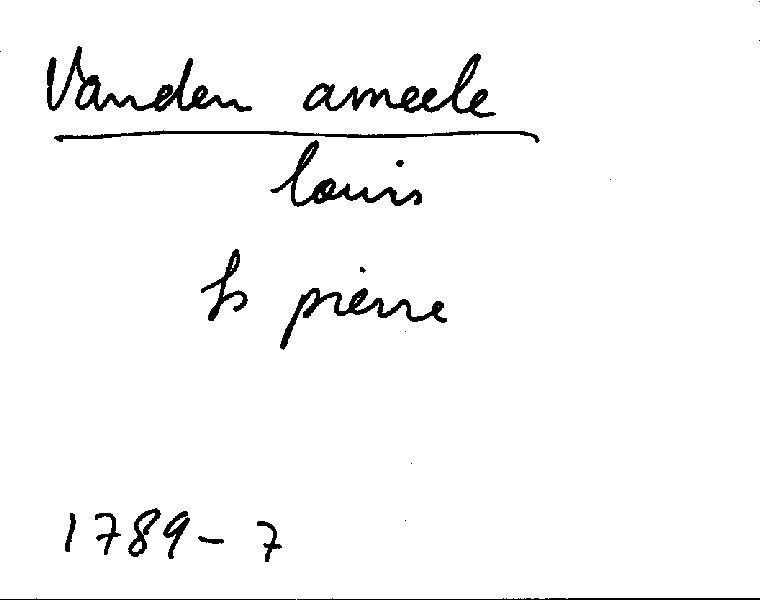 Vanden ameele
louis
fs pierre
1789-7